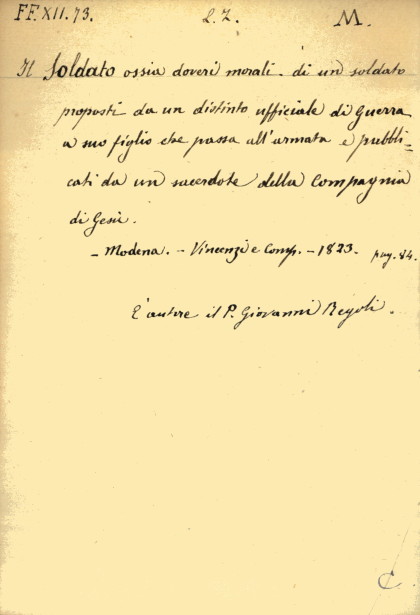 FF.XII.73. 2.Z. M.
Il Soldato ossia doveri morali di un soldato
proposti da un distinto ufficiale di Guerra
a suo figlio che passa all'armata e pubbli=
cati da un sacerdote della Compagnia
di Gesù.
- Modena. - Vincenzi e Comp. - 1823. pag. 84.
È autore il P. Giovanni Regoli.
C.